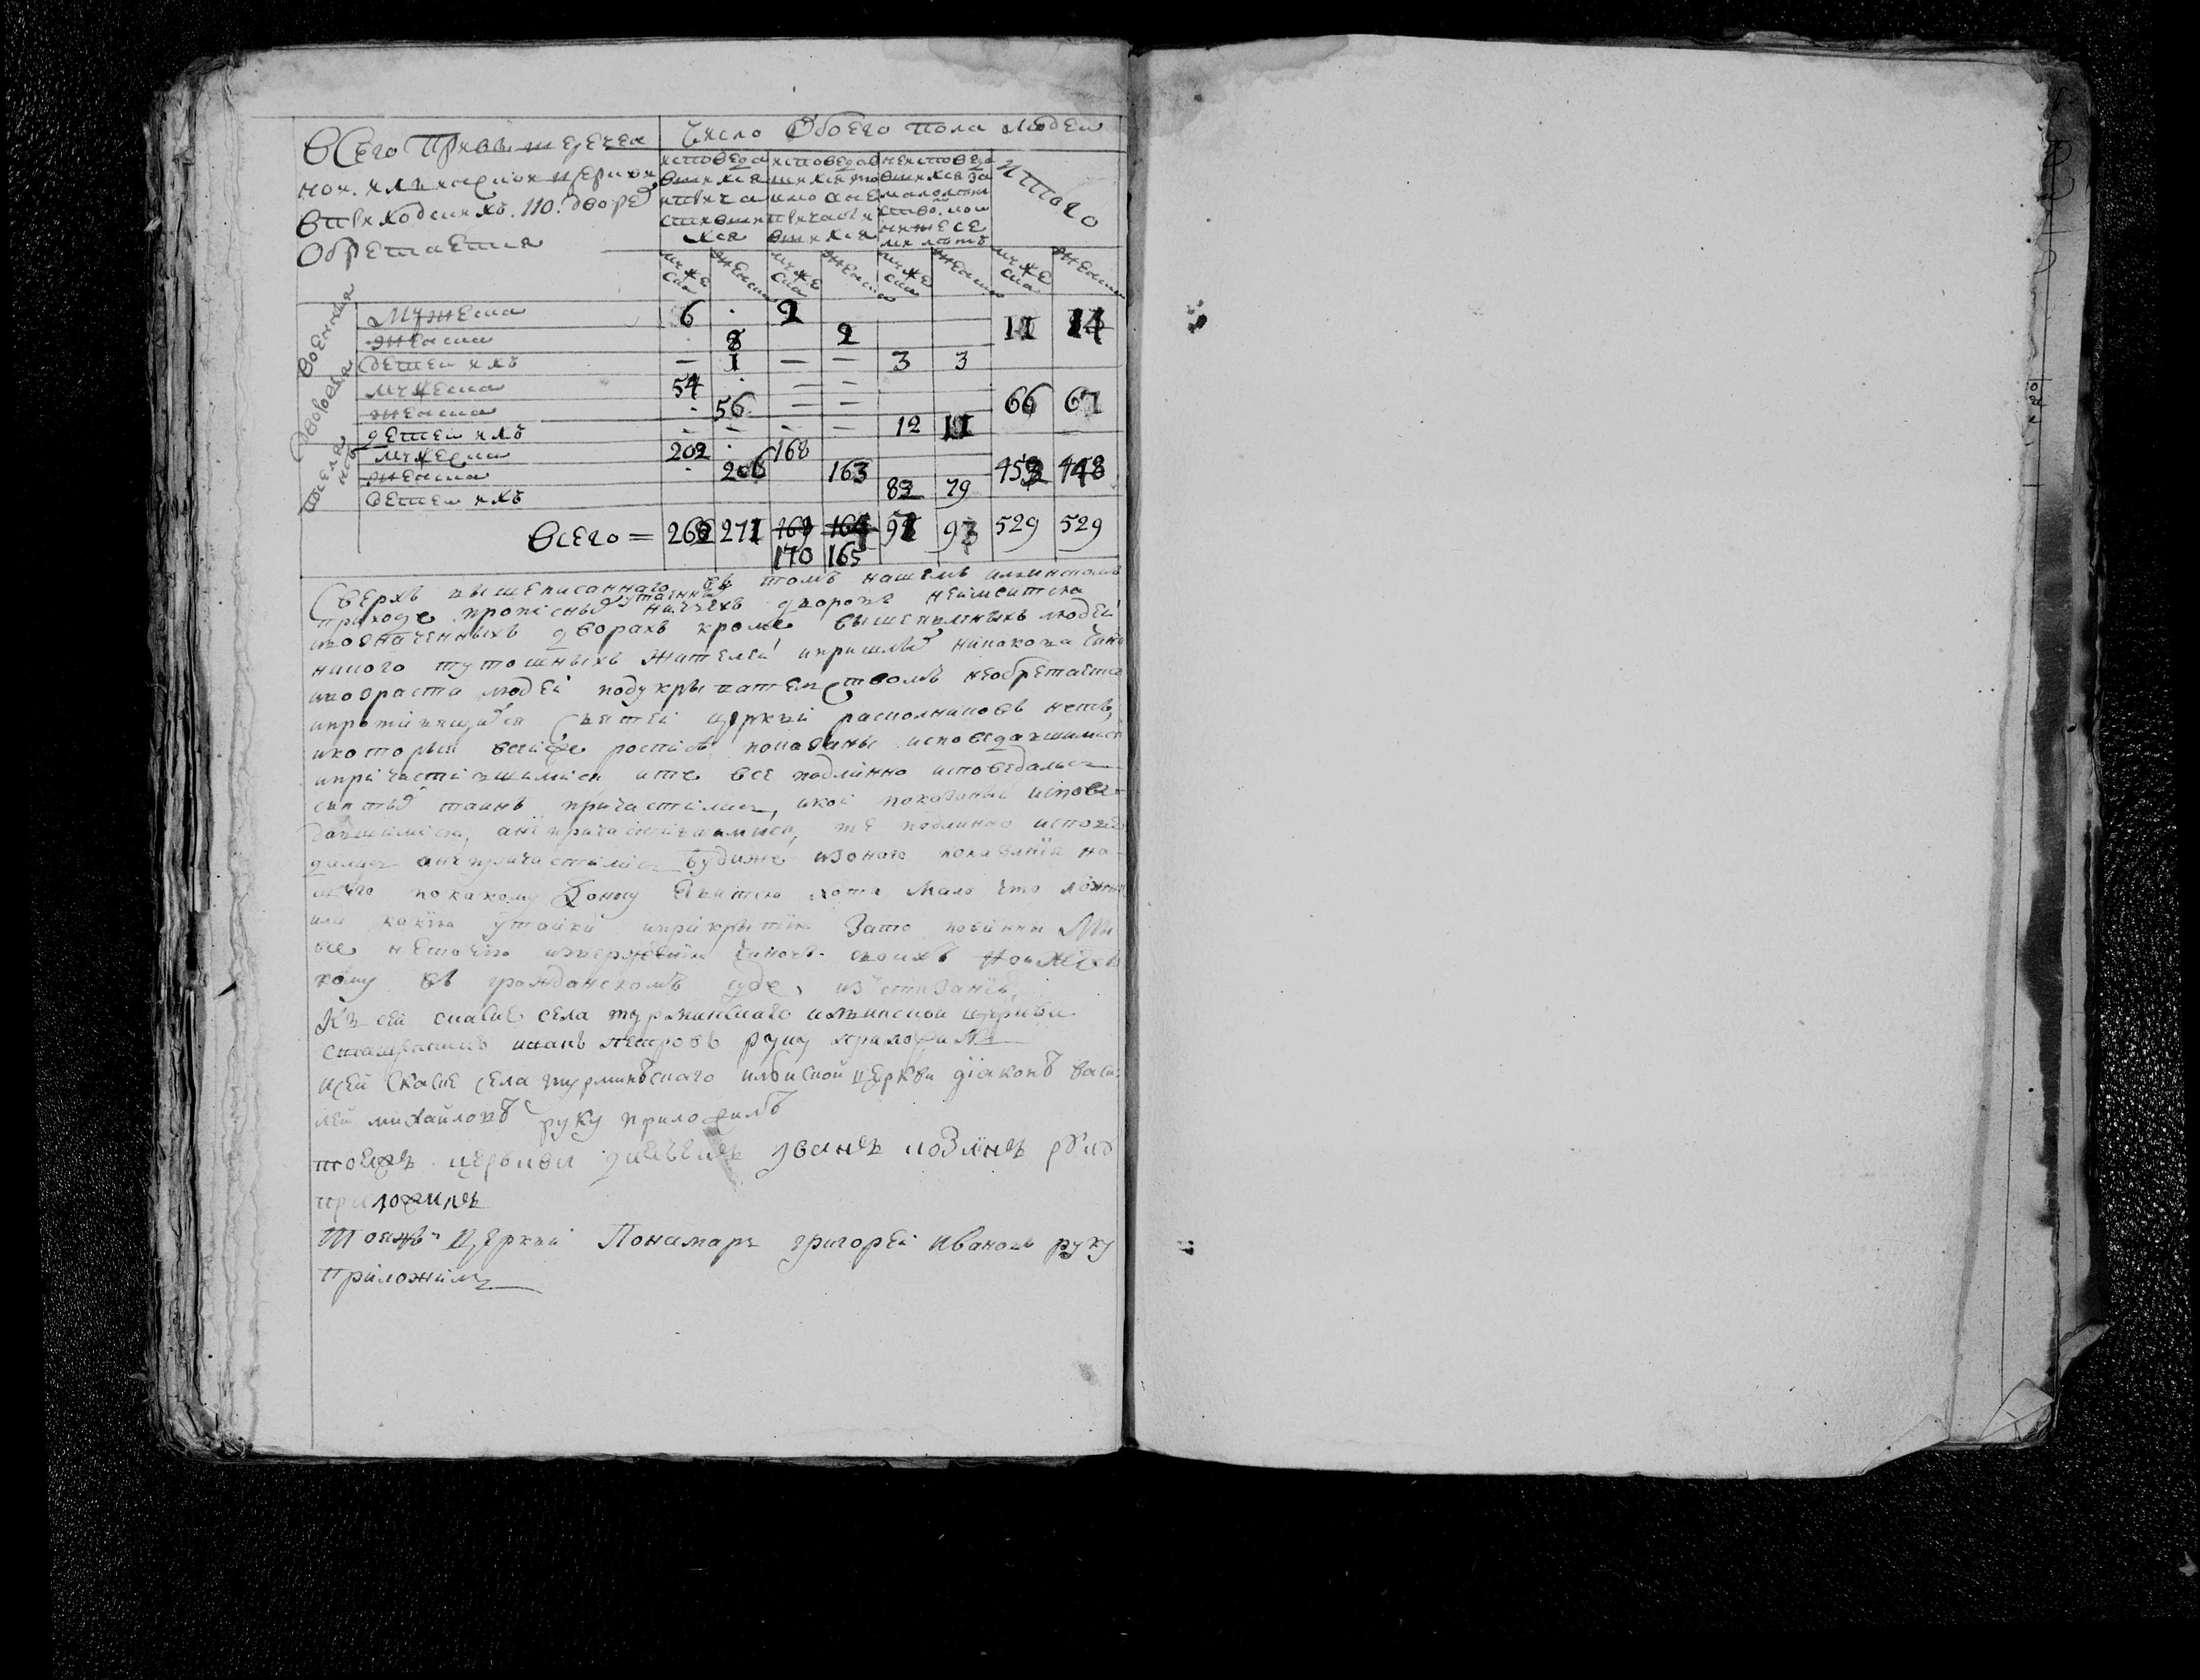 Всего при вышеречен
ной ильинской церкви
в приходских. 110. дворе
обретаетца
Число обоего пола людей
исповеда
вшихся
и прича
стивши
хся
исповедав
шихся то
кмо а не
причасти
вшихся
не исповеда
вшихся за
малолет
ство
Итого
мужеска
женска
мужеска
женска
мужеска
женска
мужеска
женска
Военныя
мужеска 6 . 2 11 14
женска . 8 2
детей их — 1 — — 3 3
Дворовыя
мужеска 54 . — — 66 67
женска . 56 — —
детей их — — — — 12 11
Поселя
нъ
мужеска 202 . 168 452 448
женска . 206 163
детей их 82 79
Всего = 262 271 169 164 97 93 529 529
170 165
Сверхъ вышеписанного въ томъ нашемъ ильинскомъ
приходе прописных утаенных ни в чьих дворовъ не имеитца
и в означенныхъ дворахъ кроме вышеписанныхъ людей
никого тутошныхъ жителей и пришлых никокова чина
и возраста людей под укрывателством не обретаетца
и противящихся святей церкви расколниковъ нетъ,
и которыя в сей росписе показаны исповедавшимися
и причастившимися и те все подлинно исповедались
святых таинъ причастились, и кои показаны испове
давшимися, а не причастившимися, те подлинно испове
дались а не причастились буди же из оного показания на
шего по какому доносу явитца хотя мало что ложно
или какая утайка и прикрытие за то повинны мы
все не точию извержения чиновъ своихъ но и жесто
кому въ гражданскомъ суде истязания,
Къ сей скаске села турминского ильинской церкви
священникъ иванъ петровъ руку приложилъ
К сей скаске села турминского ильинской церкви диаконъ васи
лей михайловъ руку приложилъ
тоежъ церькви дьячекъ иванъ козминъ руку
приложилъ
Тоежъ церкви Понамарь григорей Ивановъ руку
приложилъ